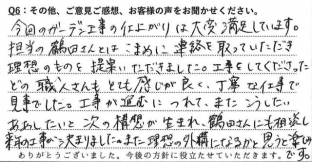 Q6：その他、ご意見ご感想、お客様の声をお聞かせください。
今回のガーデン工事の仕上がりは大変満足しています。
担当の鶴田さんとはこまめに連絡を取っていただき
理想のものを提案いただきました。工事をしてくださった
どの職人さんもとても感じが良く、丁寧な仕事で
見事でした。工事が進むにつれて、またこうしたい
ああしたいと次の構想が生まれ、鶴田さんにも相談し
工事が決まりました。また理想の外構になるかと思うと楽しみ
ありがとうございました。今後の方針に役立たせていただきます。
です。